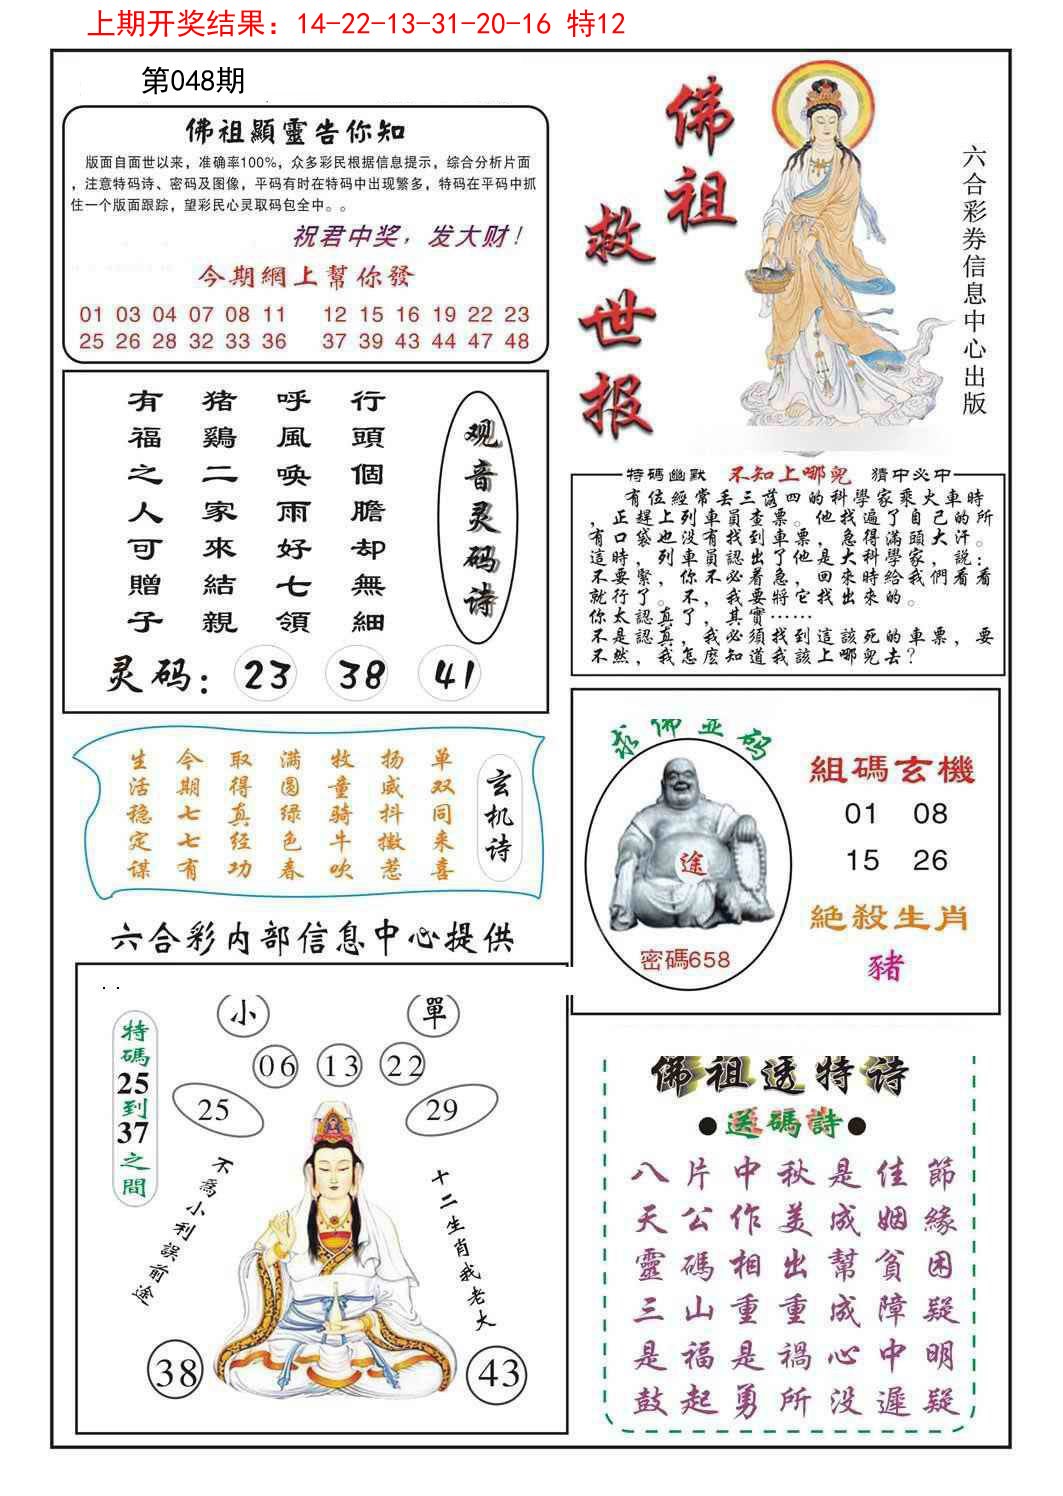 上期开奖结果：14-22-13-31-20-16 特12
第048期
佛祖顯靈告你知
版面自面世以来，准确率100%，众多彩民根据信息提示，综合分析片面
，注意特码诗、密码及图像，平码有时在特码中出现繁多，特码在平码中抓
住一个版面跟踪，望彩民心灵取码包全中。。
祝君中奖，发大财！
今期網上幫你發
01 03 04 07 08 11 12 15 16 19 22 23
25 26 28 32 33 36 37 39 43 44 47 48
佛祖
救世报
六合彩券信息中心出版
观音灵码诗
行頭個膽却無細
呼風喚雨好七領
猪鷄二家來結親
有福之人可贈子
灵码：23 38 41
特碼幽默 不知上哪兒 猜中必中
有位經常丢三落四的科學家乘火車時
，正趕上列車員查票。他找遍了自己的所
有口袋也没有找到車票，急得滿頭大汗。
這時，列車員認出了他是大科學家，説：
不要緊，你不必着急，回來時給我們看看
就行了。不，我要將它找出來的。
你太認真了，其實……
不是認真，我必須找到這該死的車票，要
不然，我怎麽知道我該上哪兒去？
玄机诗
单双同来喜
扬威抖擞惹
牧童骑牛吹
满圆绿色春
取得真经功
今期七七有
生活稳定谋
求佛並码
途
密碼658
組碼玄機
01 08
15 26
絶殺生肖
豬
六合彩内部信息中心提供
小 單
06 13 22
25 29
特碼25到37之間
不爲小利誤前途
十二生肖我老大
38 43
佛祖透特诗
●送碼詩●
八片中秋是佳節
天公作美成姻緣
靈碼相出幫貧困
三山重重成障疑
是福是禍心中明
鼓起勇所没遲疑